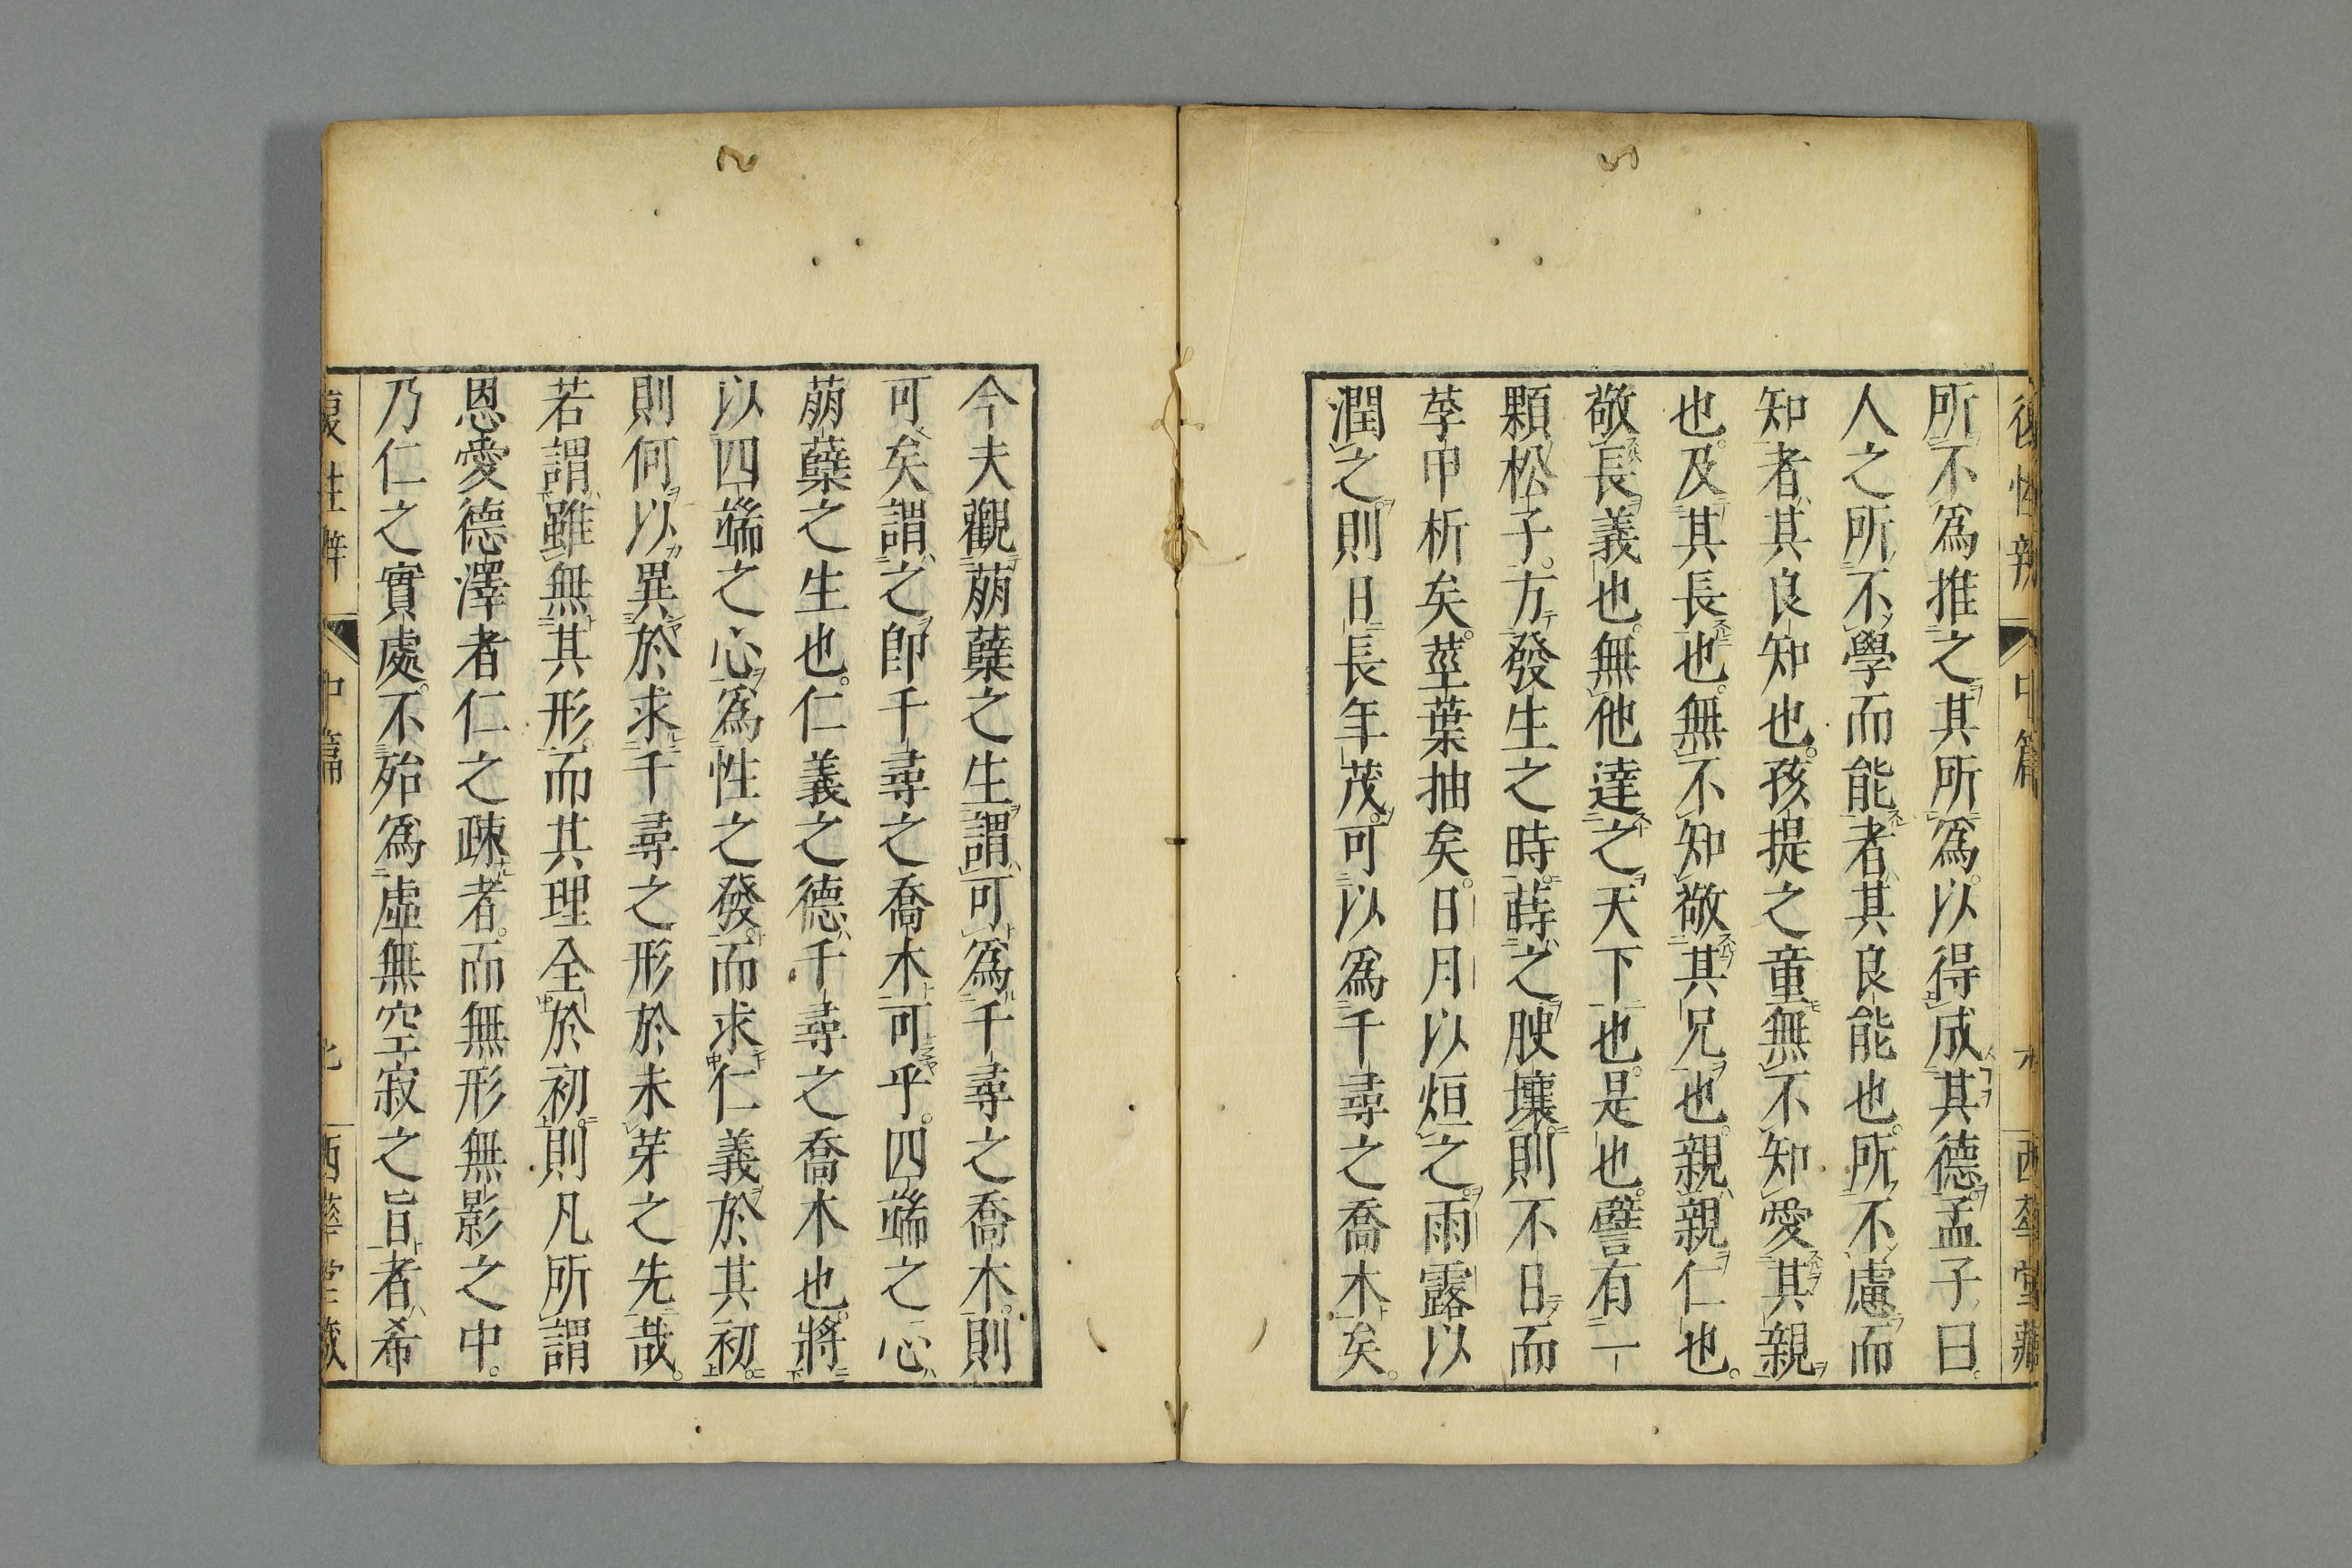 復性辨 中篇 西華堂藏
所不為推之其所為以得成其德孟子曰
人之所不學而能者其良能也所不慮而
知者其良知也孩提之童無不知愛其親
也及其長也無不知敬其兄也親親仁也
敬長義也無他達之天下也是也譬有一
顆松子方發生之時蒔之腴壤則不日而
莩甲析矣莖葉抽矣日月以烜之雨露以
潤之則日長年茂可以為千尋之喬木矣
今夫觀萠蘖之生謂可為千尋之喬木則
可矣謂之即千尋之喬木可乎四端之心
萠蘖之生也仁義之德千尋之喬木也將
以四端之心為性之發而求仁義於其初
則何以異於求千尋之形於未芽之先哉
若謂雖無其形而其理全於初則凡所謂
恩愛德澤者仁之疎者而無形無影之中
乃仁之實處不殆為虛無空寂之旨者希
復性辨 中篇 七 西華堂藏